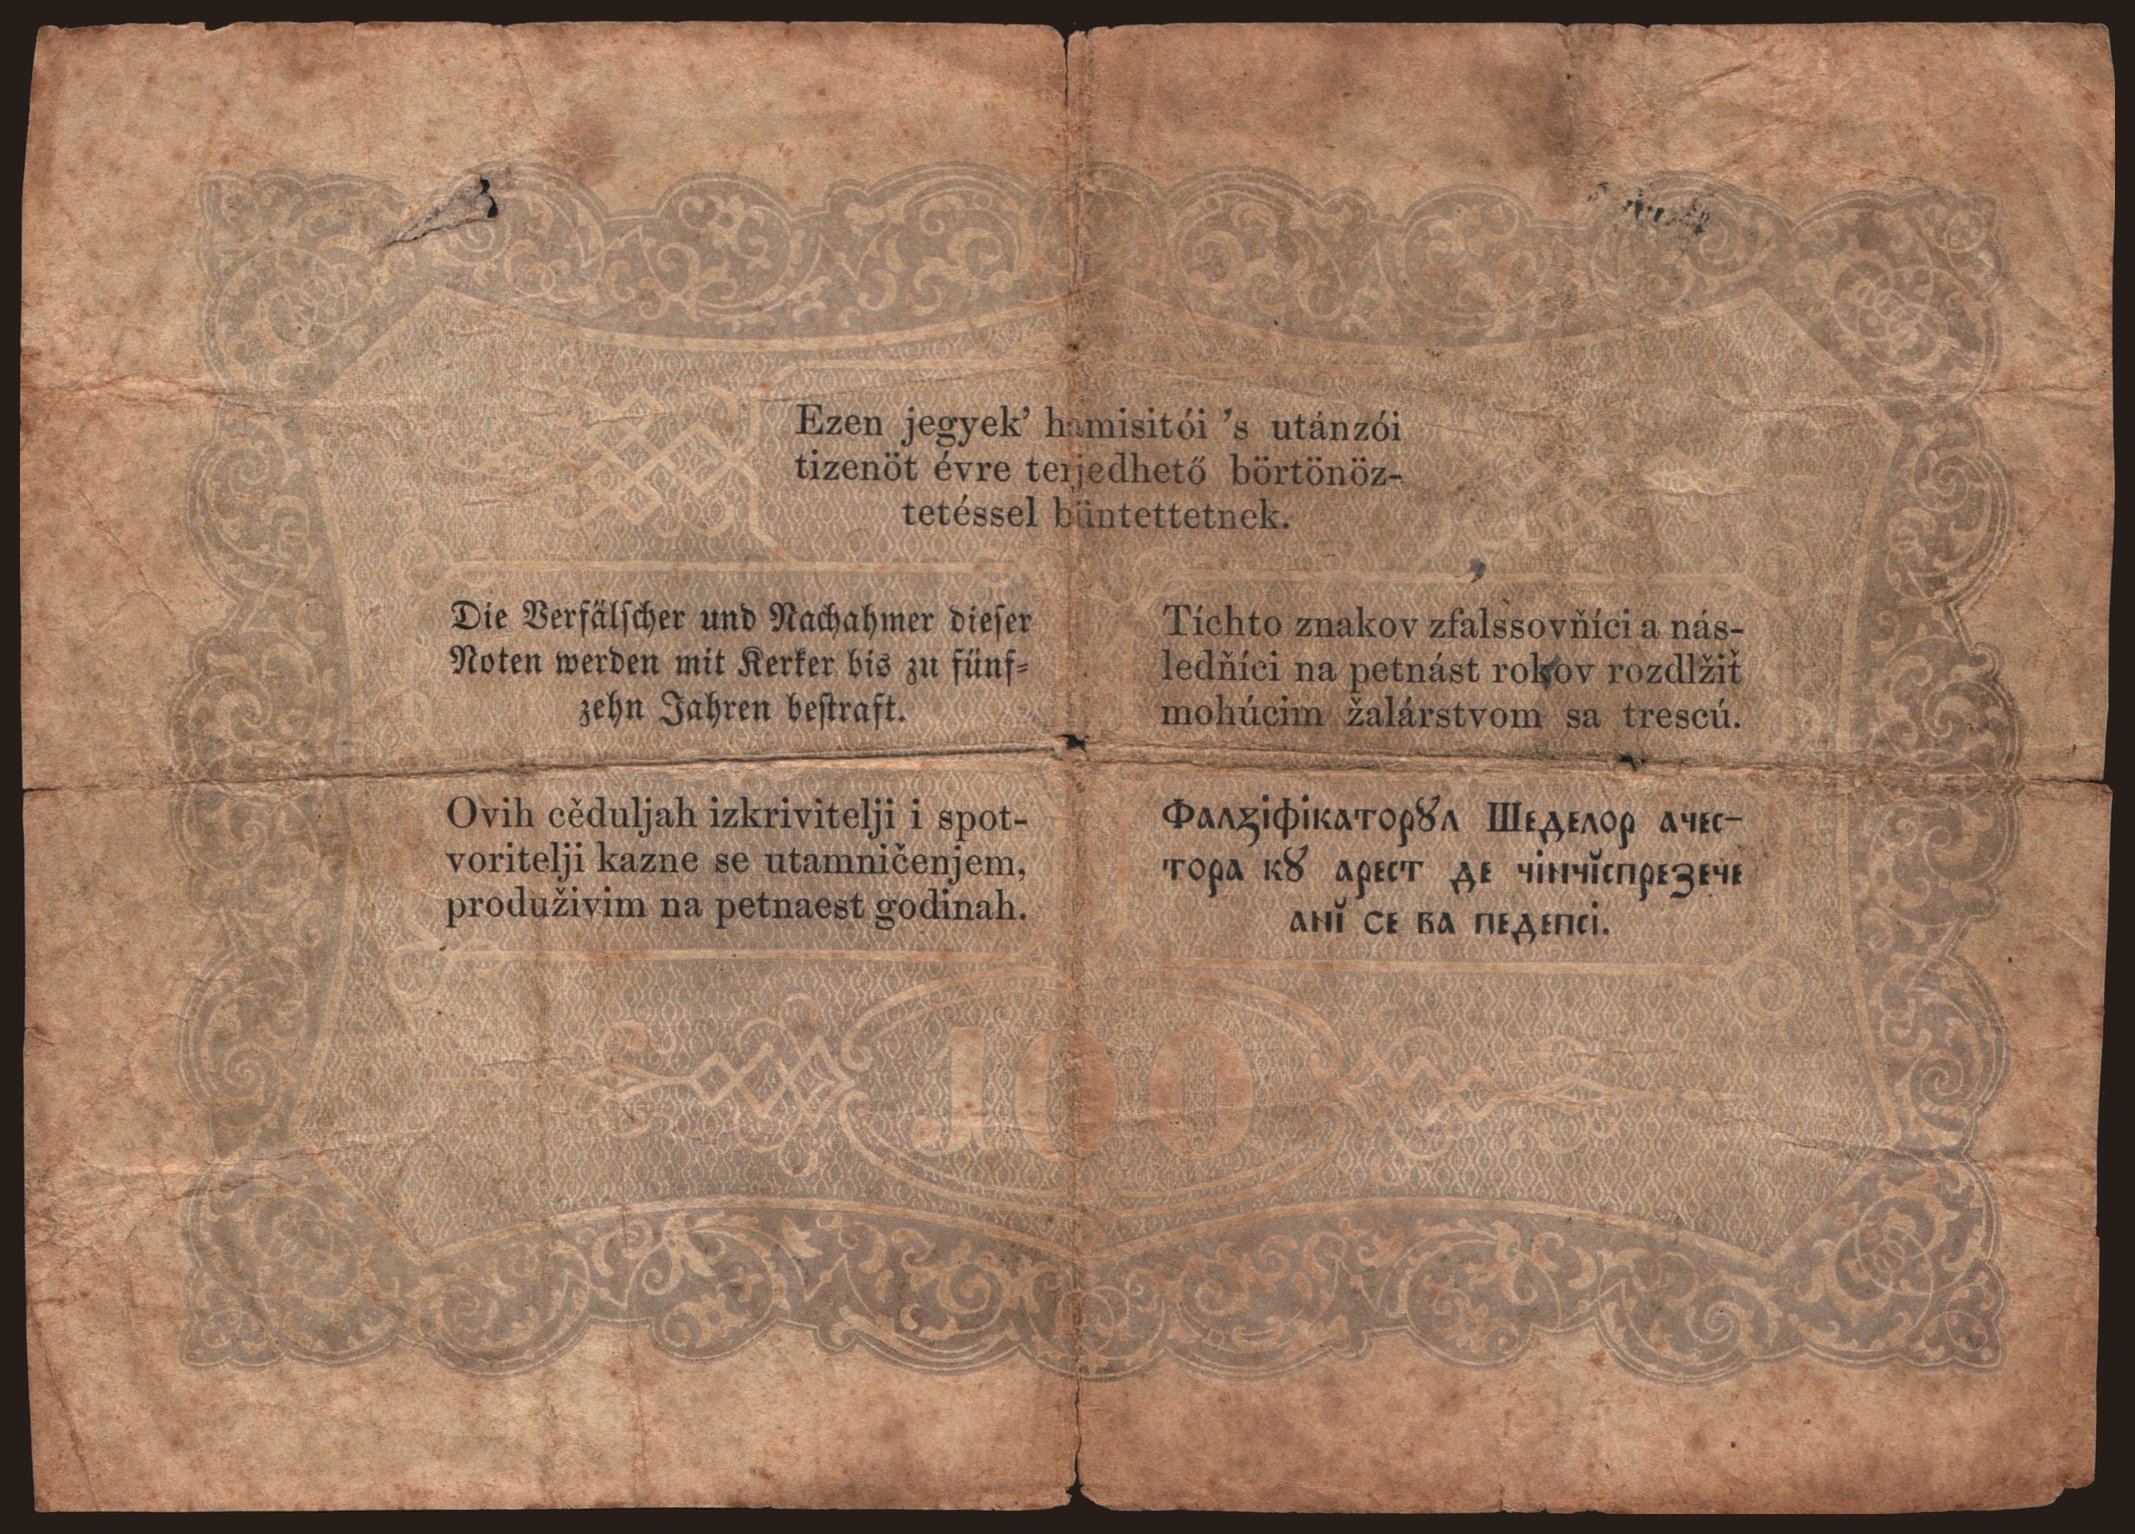 Ezen jegyek' hamisitói 's utánzói
tizenöt évre terjedhető börtönöz-
tetéssel büntettetnek.
Die Verfälscher und Nachahmer dieser
Noten werden mit Kerker bis zu fünf-
zehn Jahren bestraft.
Tíchto znakov zfalssovňíci a nás-
ledňíci na petnást rokov rozdlžiť
mohúcim žalárstvom sa trescú.
Ovih cěduljah izkrivitelji i spot-
voritelji kazne se utamničenjem,
produživim na petnaest godinah.
Фалꙁіфікаторꙋл Шеделор ачес-
тора кꙋ арест де чінчĭспрезече
анĭ се ва педепсі.
100